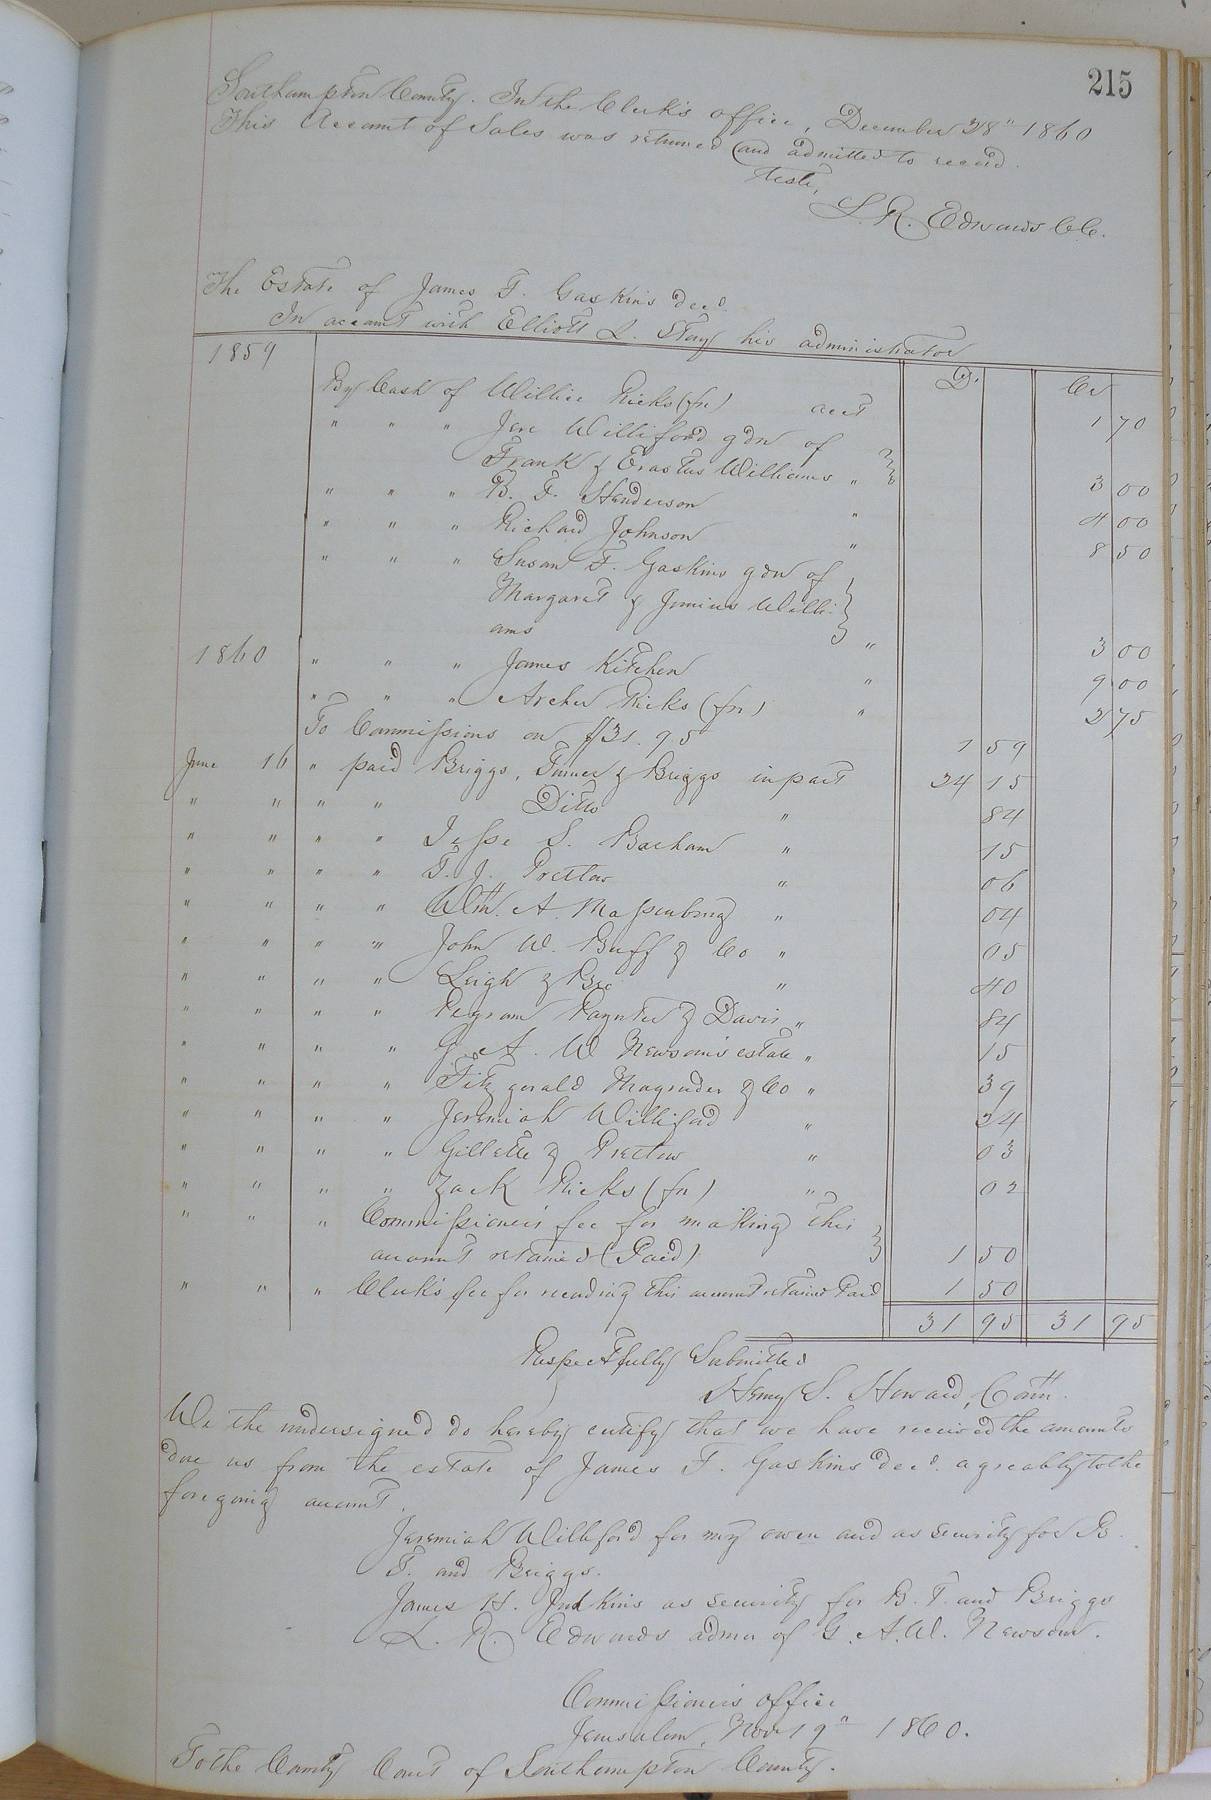 215
Southampton County. In the Clerk's office, December 28" 1860
This Account of Sales was returned and admitted to record.
Teste,
L. R. Edwards CC.
The Estate of James F. Gaskins decd.
In account with Elliott L. Story his administrator
1859 Dr. Cr
By Cash of Willie Ricks (fn) acct 1 70
" " " Jere Williford gdn of
Frank & Erastus Williams " 3 00
" " " B. F. Henderson " 4 00
" " " Richard Johnson " 8 50
" " " Susan F. Gaskins gdn of
Margaret & Junius Willi
ams " 3 00
1860 " " " James Kitchen " 9 00
" " " Archer Ricks (fn) " 2 75
To Commissions on $31.95 1 59
June 16 " paid Briggs, Turner & Briggs in part 24 15
" " " " Ditto " 84
" " " " Jesse S. Barham " 15
" " " " T. J. Pretlow " 06
" " " " Wm. A. Massenburg " 04
" " " " John W. Buff & Co " 05
" " " " Leigh & Bro " 40
" " " " Pegram Paynter & Davis " 84
" " " " G. A. W Newsom's estate " 15
" " " " Fitzgerald Magruder & Co " 39
" " " " Jeremiah Williford " 24
" " " " Gillette & Pretlow " 03
" " " " Zack Ricks (fn) " 02
" " " Commissioner's fee for making this
account retained (Paid) 1 50
" " " Clerk's fee for recording this account retained Paid 1 50
31 95 31 95
Respectfully Submitted
Henry S. Howard, Com.
We the undersigned do hereby certify that we have received the amounts
due us from the estate of James F. Gaskins decd. agreably to the
foregoing account.
Jeremiah Williford for my own and as security for B.
T. and Briggs.
James H. Judkins as security for B. T. and Briggs
L. R. Edwards admr of G. A. W. Newsom.
Commissioner's office
Jerusalem, Nov 19" 1860.
To the County Court of Southampton County.